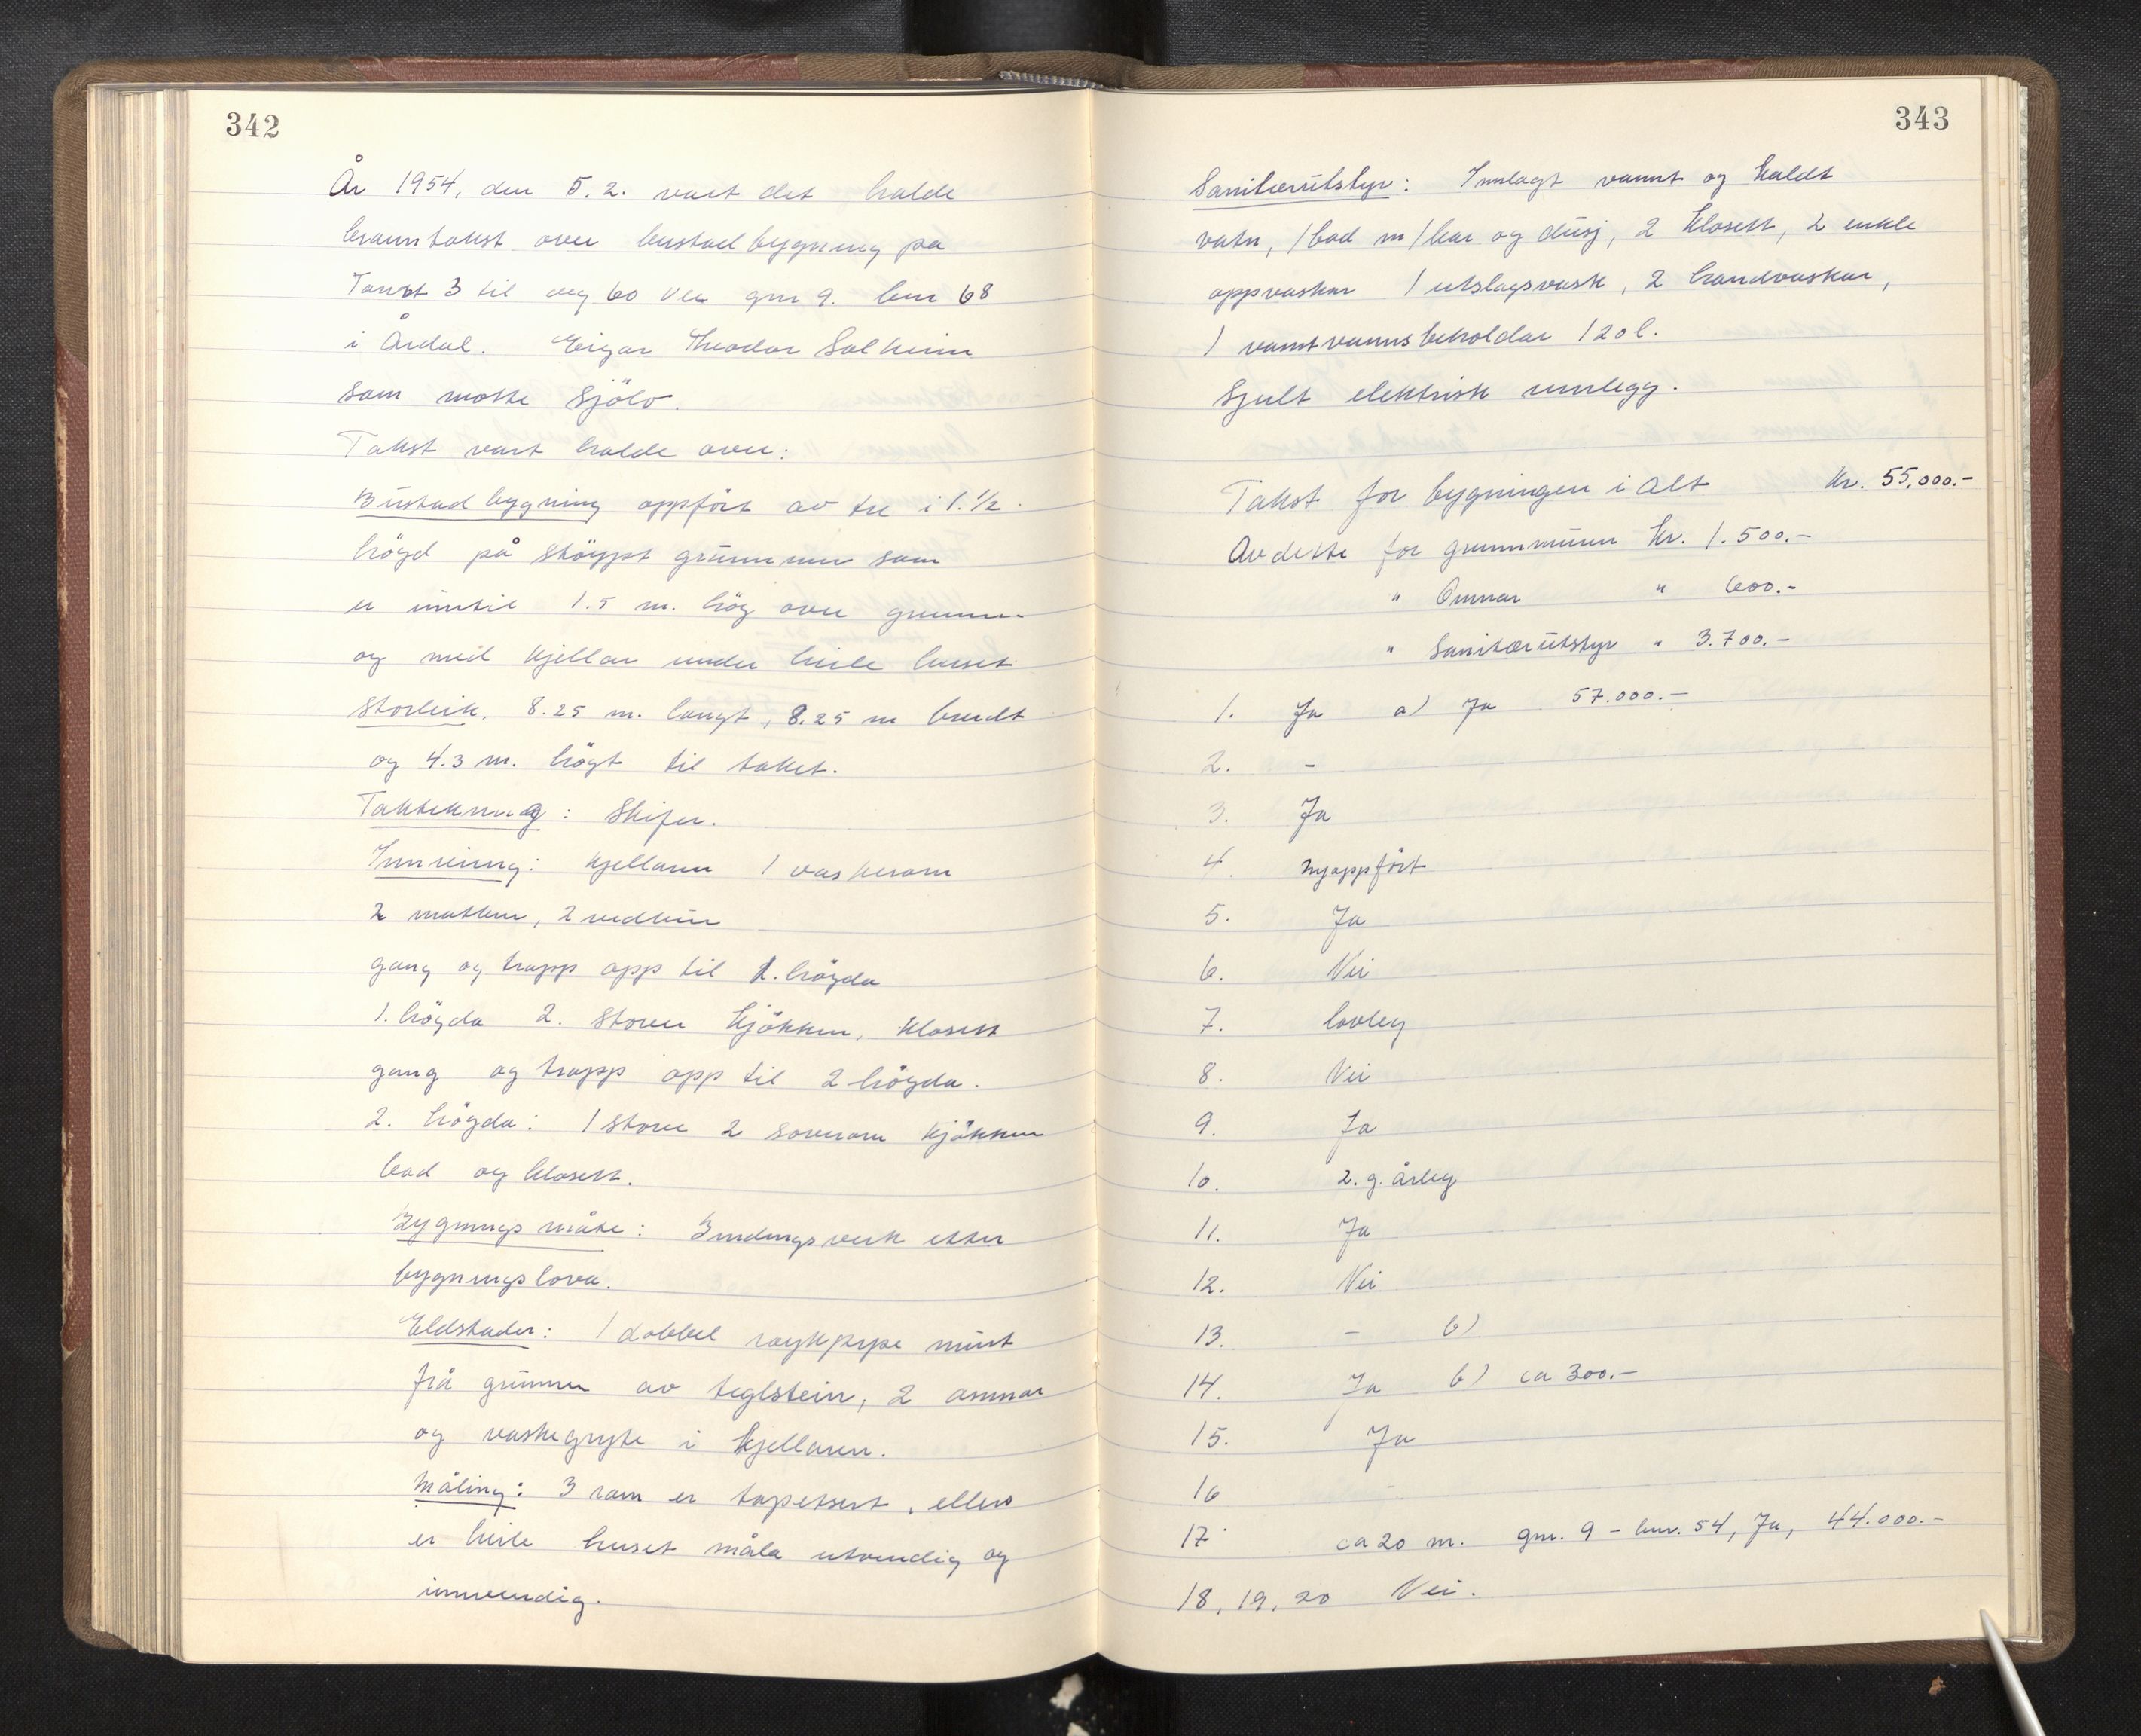 342
År 1954, den 5.2. vart det halde
branntakst over bustadbygning på
Tomt 3 til og 60 Ve gnr 9. bnr 68
i Årdal. Eigar Theodor Solheim
som møtte sjölv.
Takst vart halde over:
Bustadbygning oppfört av tre i 1.½
högd på stöypt grunnmur som
er inntil 1.5 m. hög over grunn-
og med kjellar under heile huset
Storleik. 8.25 m. langt, 8.25 m breidt
og 4.3 m. högt til taket.
Taktekning: Skifer.
Innreiing: Kjellaren 1 vaskerom
2 matbur, 2 vedbur
gang og trapp opp til 1. högda
1. högda 2. stover kjökken, klosett
gang og trapp opp til 2 högda.
2. högda: 1 stove 2 soverom kjökken
bad og klosett.
Bygnings måte: Bindingsverk etter
bygningslova.
Eldstader: 1 dobbel røykpipe murt
frå grunnen av teglstein, 2 omnar
og vaskegryte i kjellaren.
Måling: 3 rom er tapetsert, ellers
er heile huset måla utvendig og
innvendig.
343
Sanitærutstyr: Innlagt varmt og kaldt
vatn, 1 bad m/kar og dusj, 2 klosett, 2 enkle
oppvaskar 1 utslagsvask, 2 handvaskar,
1 varmtvannsbeholdar 120 l.
Sjult elektrisk innlegg.
Takst for bygningen i alt Kr. 55.000.-
Av dette for grunnmuren Kr. 1.500.-
" Omnar " 600.-
" Sanitærutstyr " 3.700.-
1. Ja a) Ja 57.000.-
2. -
3. Ja
4. nyoppfört
5. Ja
6. Nei
7. lovleg
8. Nei
9. Ja
10. 2. g. årleg
11. Ja
12. Nei
13. - b)
14. Ja b) ca 300.-
15. Ja
16 -
17. ca 20 m. gnr. 9 - bnr. 54, Ja, 44.000.-
18, 19, 20 Nei.